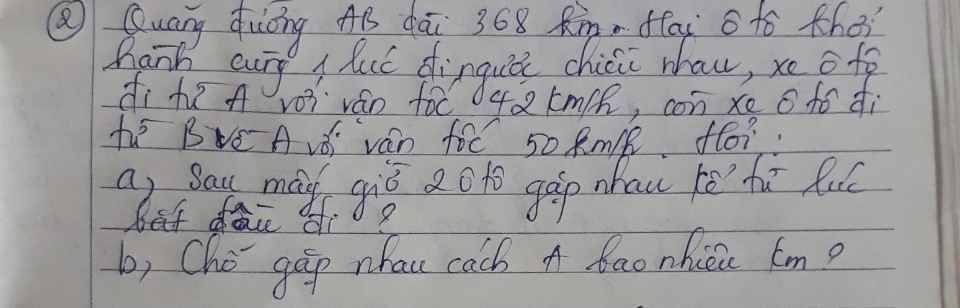 ② Quãng đường AB dài 368 km. Hai ô tô khởi
hành cùng 1 lúc đi ngược chiều nhau, xe ô tô
đi từ A với vận tốc 42 km/h, còn xe ô tô đi
từ B về A với vận tốc 50 km/h. Hỏi:
a, Sau mấy giờ 2 ô tô gặp nhau kể từ lúc
bắt đầu đi?
b, Chỗ gặp nhau cách A bao nhiêu km?